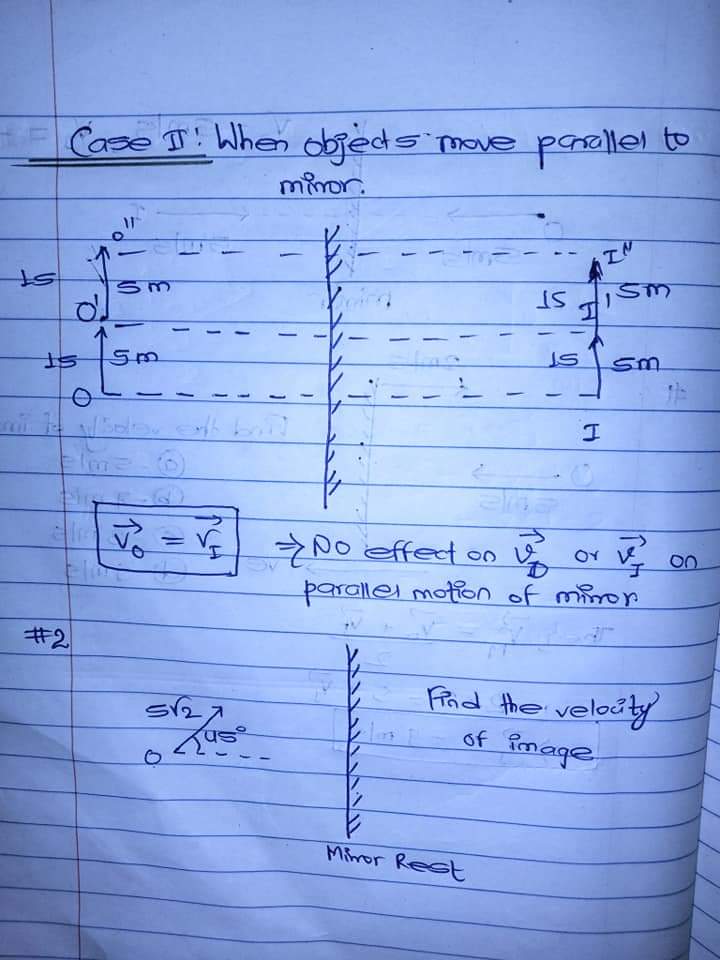 Case II: When objects move parallel to
mirror.
O"
I"
1S
5m
1S
I'
5m
O'
1S
5m
1S
5m
O
I
V⃗o = V⃗I
⇒ No effect on V⃗O or V⃗I on
parallel motion of mirror
#2
5√2
45°
O
Find the velocity
of image
Mirror Rest